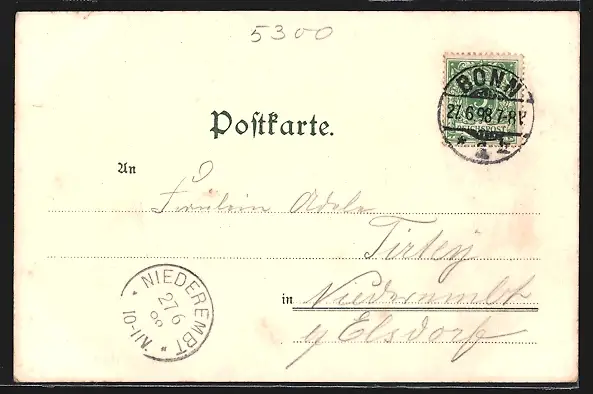 5300
BONN
5
27.6.98.7-8V.
REICHSPOST
* 1 *
Postkarte.
An
Fräulein Adele
Tirtey
in Niederembt
b/ Elsdorf
NIEDEREMBT
27 6
98
10-11N.